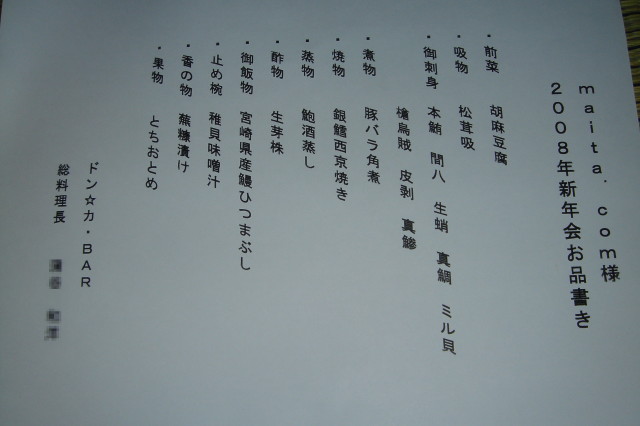 maita.com様
2008年新年会お品書き
・前菜 胡麻豆腐
・吸物 松茸吸
・御刺身 本鮪 間八 生蛸 真鯛 ミル貝
槍烏賊 皮剥 真鯵
・煮物 豚バラ角煮
・焼物 銀鱈西京焼き
・蒸物 鮑酒蒸し
・酢物 生芽株
・御飯物 宮崎県産鰻ひつまぶし
・止め椀 稚貝味噌汁
・香の物 蕪糠漬け
・果物 とちおとめ
ドン☆カ・BAR
総料理長